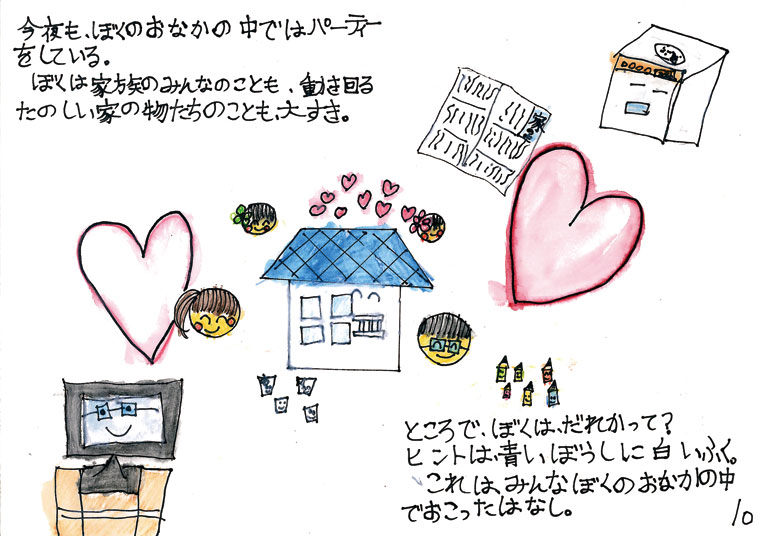 今夜も、ぼくのおなかの中ではパーティー
をしている。
ぼくは家族のみんなのことも、動き回る
たのしい家の物たちのことも、大すき。
ところで、ぼくは、だれかって？
ヒントは、青いぼうしに白いふく。
これは、みんなぼくのおなかの中
でおこったはなし。
10